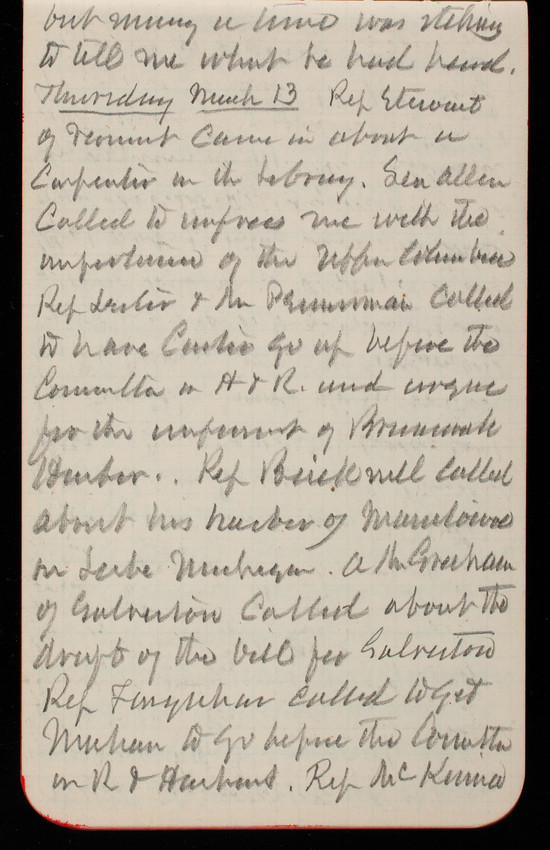 but many a time was itching
to tell me what he had heard.
Thursday March 13 Rep Stewart
of Vermont Came in about a
Carpenter in the Library. Sen Allen
Called to impress me with the
importance of the Upper Columbia
Rep Lester & Mr called
to have Carter go up before the
Committee on H & R. and argue
for the improvement of Brunswick
Harbor. Rep Brickner called
about his harbor of Manitowoc
on Lake Michigan. A Mr Graham
of Galveston Called about the
draft of the bill for Galveston
Rep Farquhar called to get
to go before the Committee
on R & Harbors. Rep McKenna